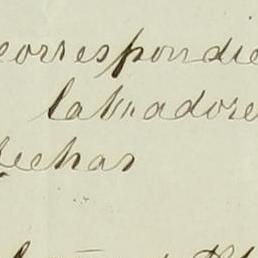 correspondie
labradore
fechas